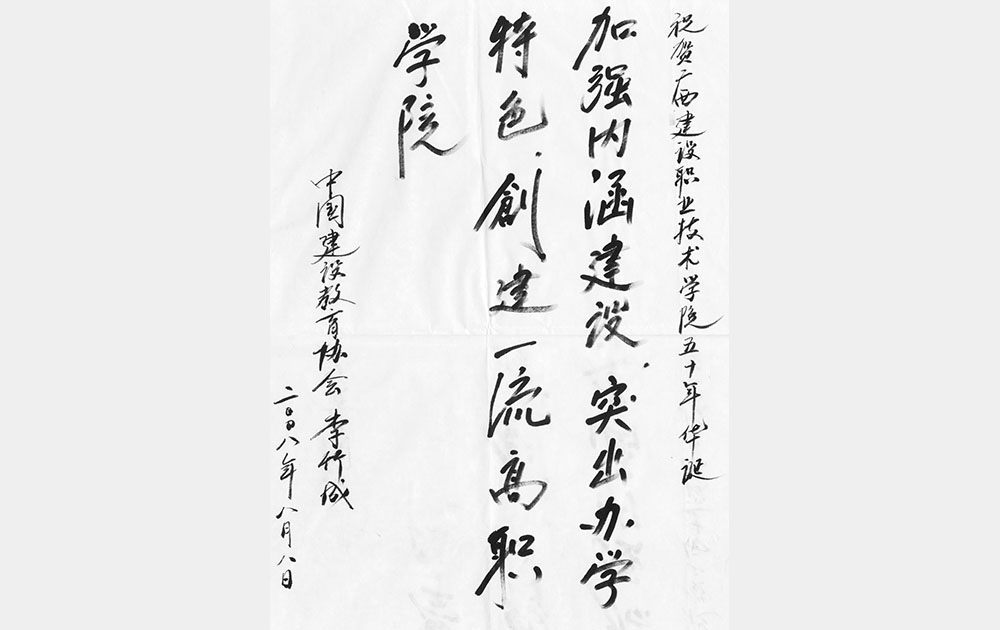 祝贺广西建设职业技术学院五十年华诞
加强内涵建设.突出办学
特色.創建一流高职
学院
中国建设教育协会 李竹成
二〇〇八年八月八日